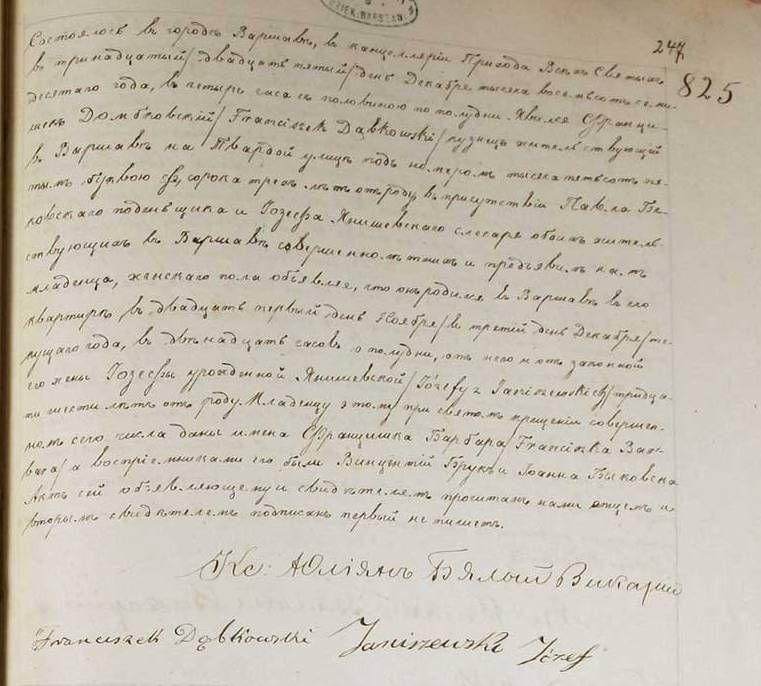 247
825
Состоялось въ городѣ Варшавѣ, въ канцелляріи Прихода Всѣхъ Святыхъ
въ тринадцатый /двадцать пятый/ день Декабря тысяча восемьсотъ семи-
десятаго года, въ четыре часа съ половиною по полудни. Явился Франци-
шекъ Домбковскій /Franciszek Dąbkowski/ кузнецъ жительствующій
въ Варшавѣ на Твардой улицѣ подъ номеромъ тысяча
тымъ буквою сорока трехъ лѣтъ отъ роду, въ присутствіи Павла
ковскаго поденьщика и Іозефа Янишевскаго слесаря обоихъ житель-
ствующихъ въ Варшавѣ совершеннолѣтнихъ и предъявилъ намъ
младенца, женскаго пола объявляя, что онъ родился въ Варшавѣ въ его
квартирѣ въ двадцать первый день Ноября /въ третій день Декабря/ те-
кущаго года, въ двѣнадцать часовъ о полудни, отъ него и отъ законной
его жены Іозефы урожденной Янишевской /Józefy z Janiszewskich/ тридца-
ти шести лѣтъ отъ роду. Младенцу этому при святомъ крещеніи совершен-
номъ сего числа даны имена Францишка Барбара /Franciszka Bar-
bara/ а воспріемниками его были Винцентій Брукъ и Іоанна Быковска
Актъ сей объявляющему и свидѣтелямъ прочитанъ нами отцемъ и
вторымъ свидѣтелемъ подписанъ первый не пишетъ.
Кс: Юліянъ Бялый Викарій
Franciszek Dąbkowski Janiszewski Józef